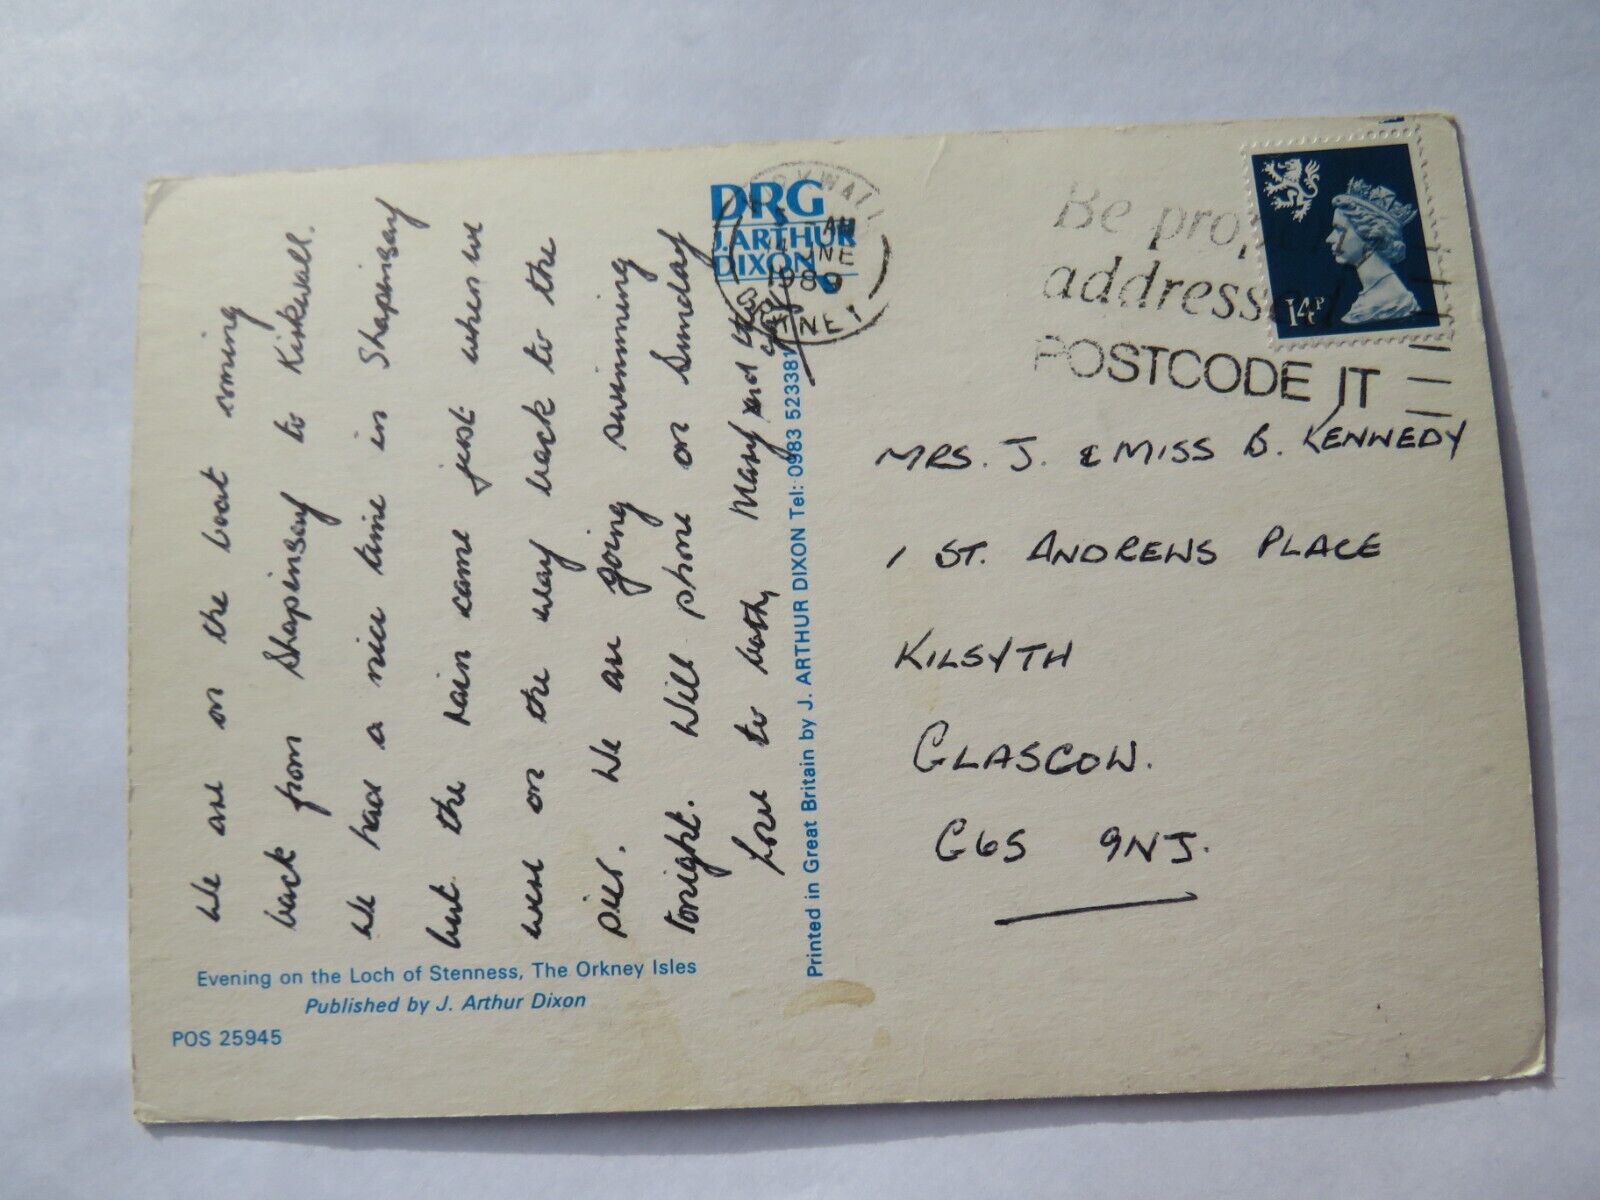 We are on the boat coming
back from Shapinsay to Kirkwall.
We had a nice time in Shapinsay
but the rain came just when we
were on the way back to the
pier. We are going swimming
tonight. Will phone on Sunday
Love to both, Mary and the
Evening on the Loch of Stenness, The Orkney Isles
Published by J. Arthur Dixon
POS 25945
Printed in Great Britain by J. ARTHUR DIXON Tel: 0983 523381
DRG
J.ARTHUR
DIXON
KIRKWALL
AM
14 JNE
1989
ORKNEY
Be properly
addressed
POSTCODE IT
14P
MRS. J. & MISS B. KENNEDY
1 ST. ANDREWS PLACE
KILSYTH
GLASGOW.
G65 9NJ.